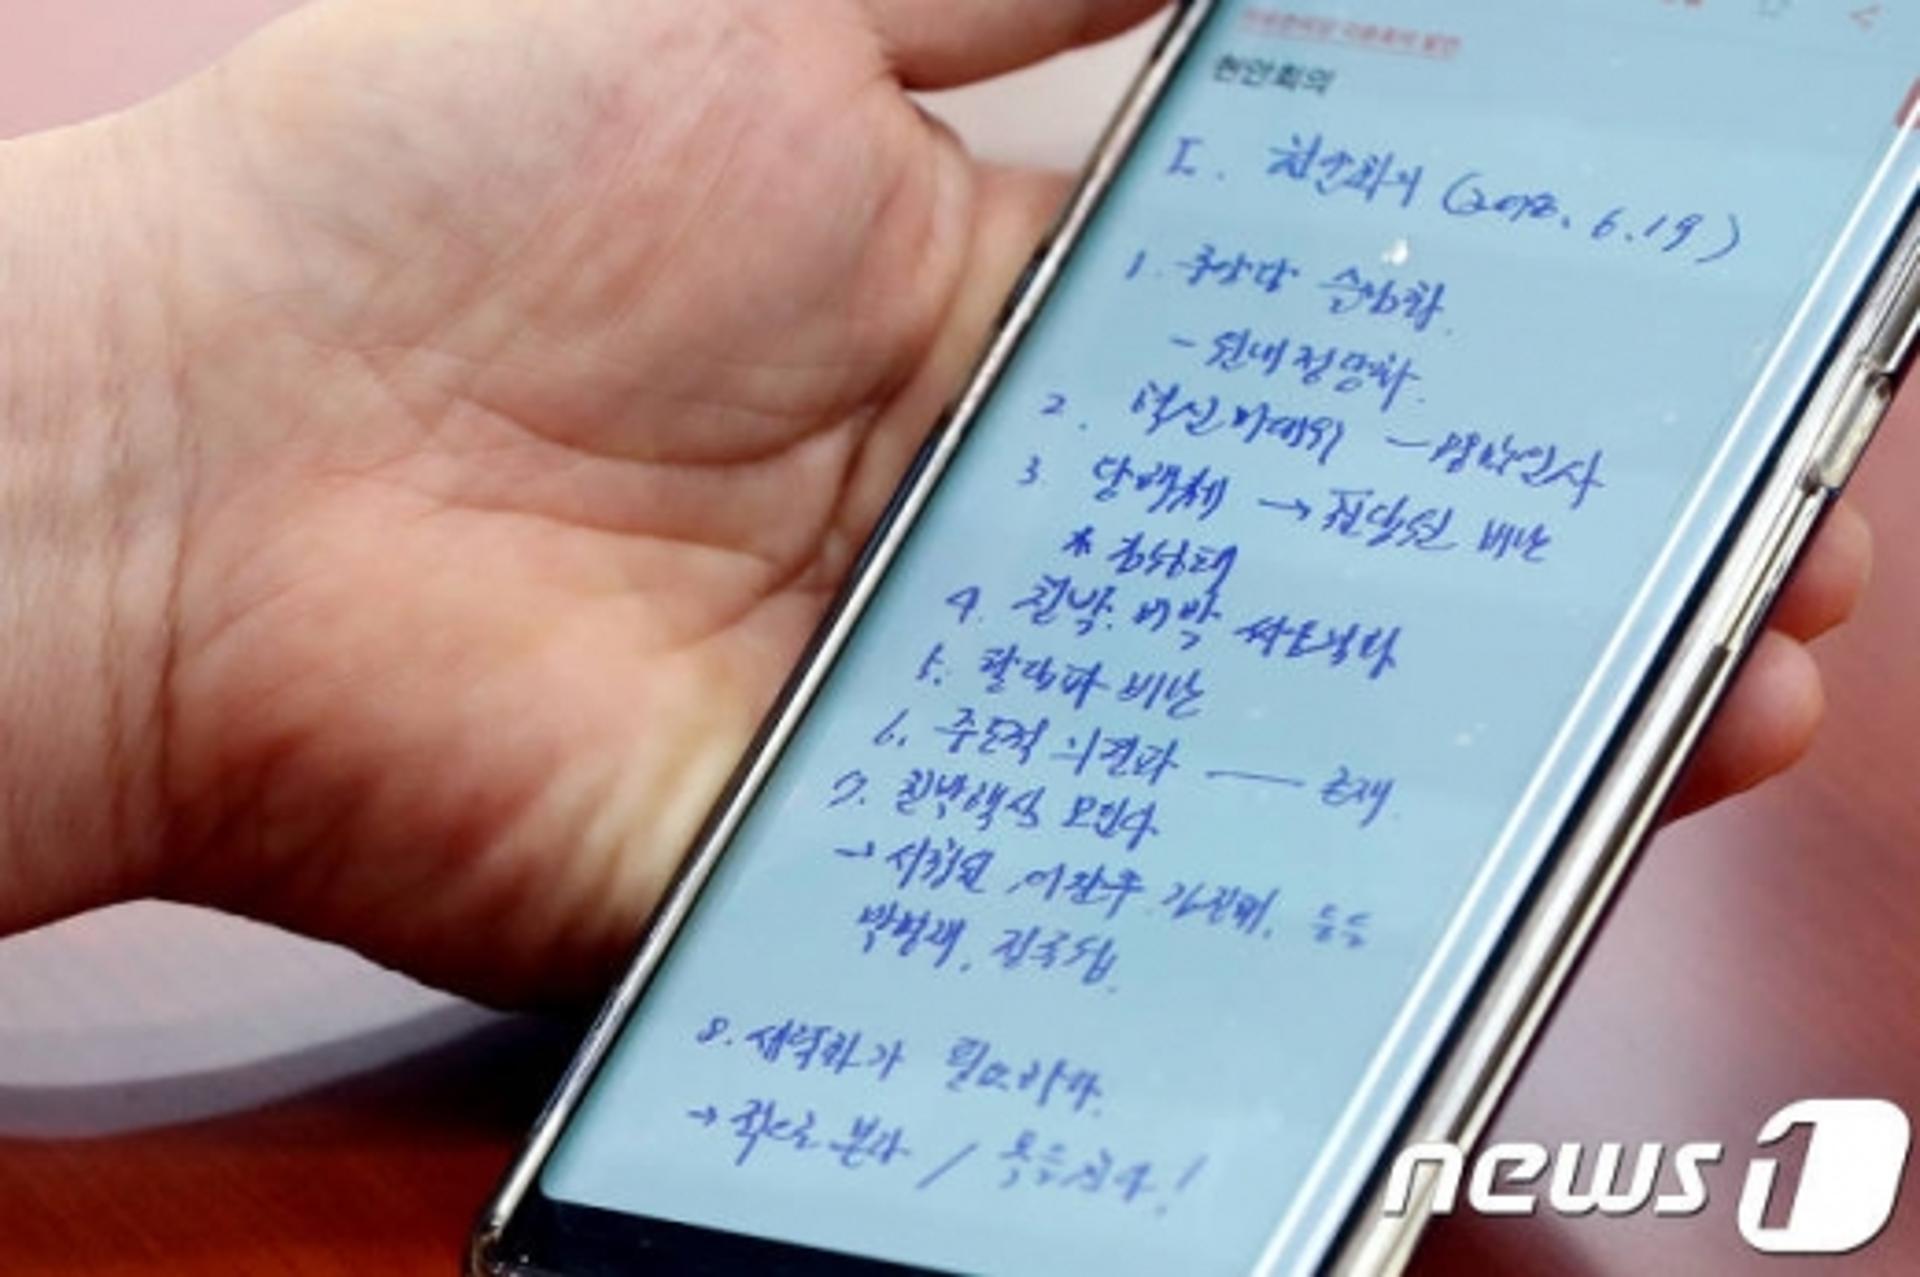 현안회의
I. 현안회의 (2018. 6.19)
1. 중앙당 슬림화.
- 원내정당화.
2. 혁신비대위 - 명망인사
3. → 전당원 비난
* 김성태
4. 친박. 비박 싸움격화
5. 탈당파 비난
6. 주도적 의견과 ― 존재.
7. 친박핵심 모인다
→ 서청원, 이장우 김진태, 등등
박명재, 정종섭.
8. 세력화가 필요하다.
→ 적으로 본다 / 목을 친다!
news1